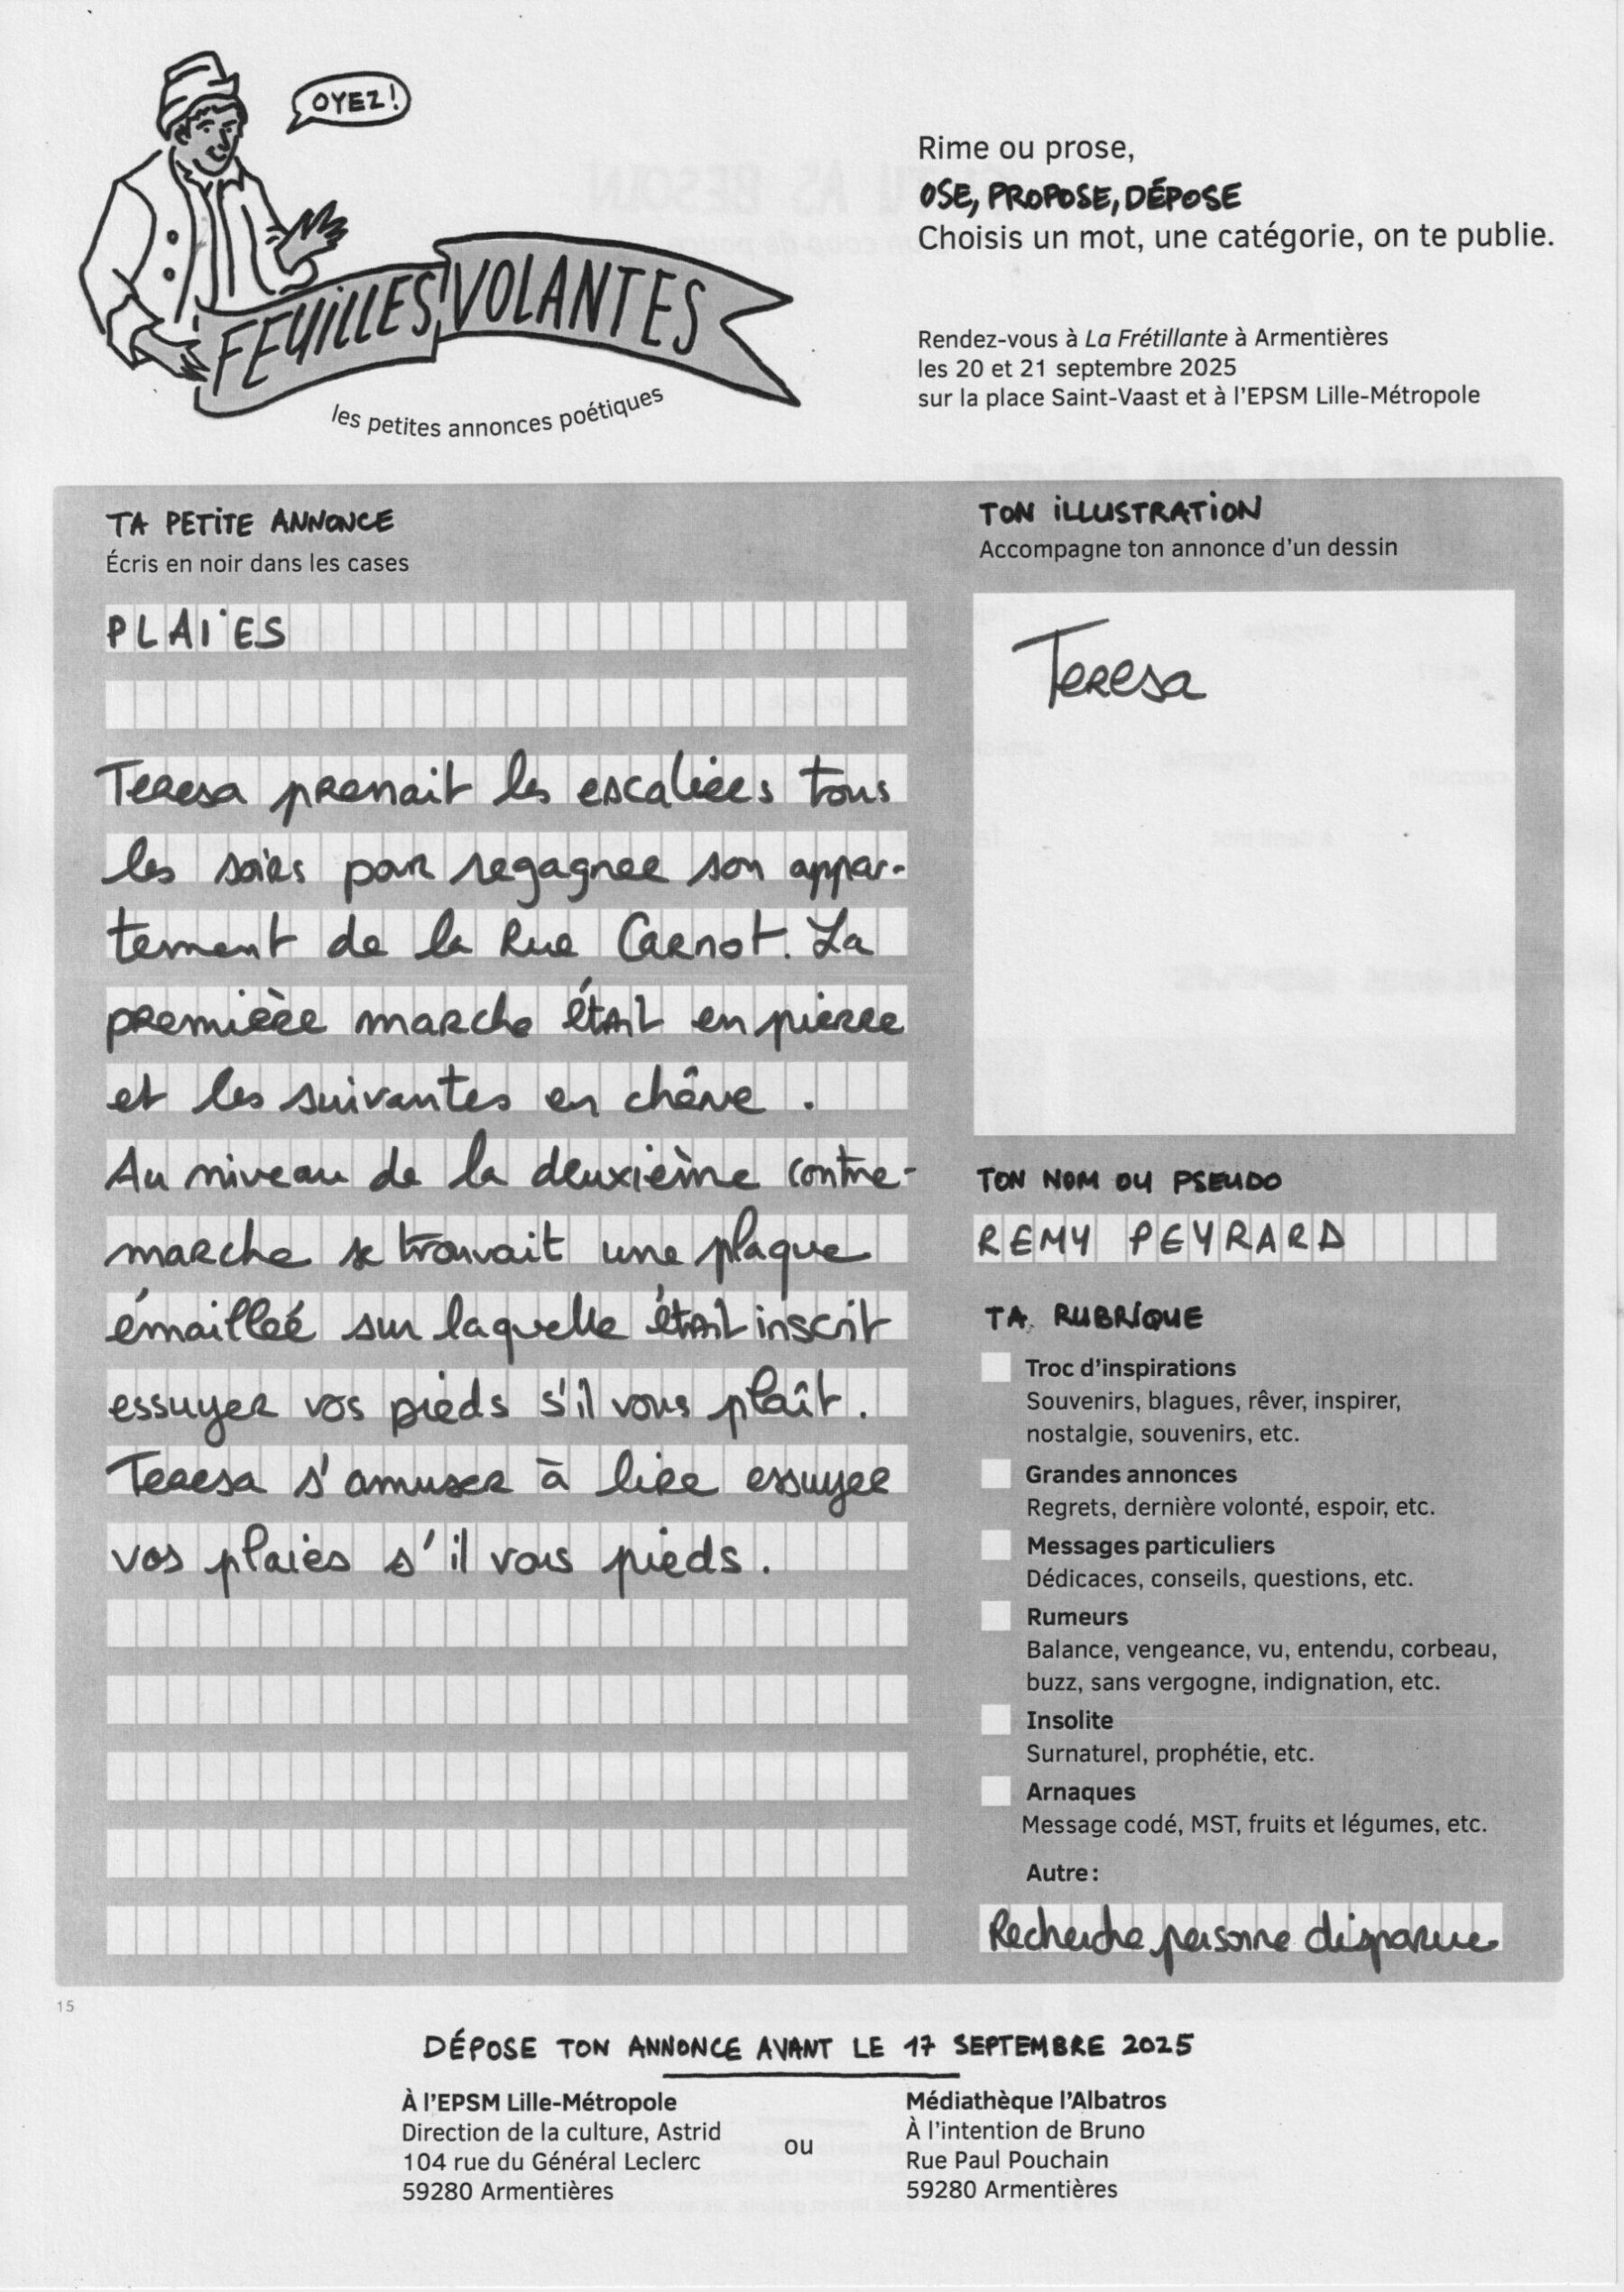 OYEZ!
FEUILLES VOLANTES
les petites annonces poétiques
Rime ou prose,
OSE, PROPOSE, DÉPOSE
Choisis un mot, une catégorie, on te publie.
Rendez-vous à La Frétillante à Armentières
les 20 et 21 septembre 2025
sur la place Saint-Vaast et à l'EPSM Lille-Métropole
TA PETITE ANNONCE
Écris en noir dans les cases
PLAIES
Teresa prenait les escaliers tous
les soirs pour regagner son appar-
tement de la Rue Carnot. La
première marche était en pierre
et les suivantes en chêne.
Au niveau de la deuxième contre-
marche se trouvait une plaque
émailleé sur laquelle était inscrit
essuyer vos pieds s'il vous plaît.
Teresa s'amuser à lire essuyer
vos plaies s'il vous pieds.
TON ILLUSTRATION
Accompagne ton annonce d'un dessin
Teresa
TON NOM OU PSEUDO
REMY PEYRARD
TA RUBRIQUE
Troc d'inspirations
Souvenirs, blagues, rêver, inspirer,
nostalgie, souvenirs, etc.
Grandes annonces
Regrets, dernière volonté, espoir, etc.
Messages particuliers
Dédicaces, conseils, questions, etc.
Rumeurs
Balance, vengeance, vu, entendu, corbeau,
buzz, sans vergogne, indignation, etc.
Insolite
Surnaturel, prophétie, etc.
Arnaques
Message codé, MST, fruits et légumes, etc.
Autre :
Recherche personne disparue
15
DÉPOSE TON ANNONCE AVANT LE 17 SEPTEMBRE 2025
À l'EPSM Lille-Métropole
Direction de la culture, Astrid
104 rue du Général Leclerc
59280 Armentières
ou
Médiathèque l'Albatros
À l'intention de Bruno
Rue Paul Pouchain
59280 Armentières